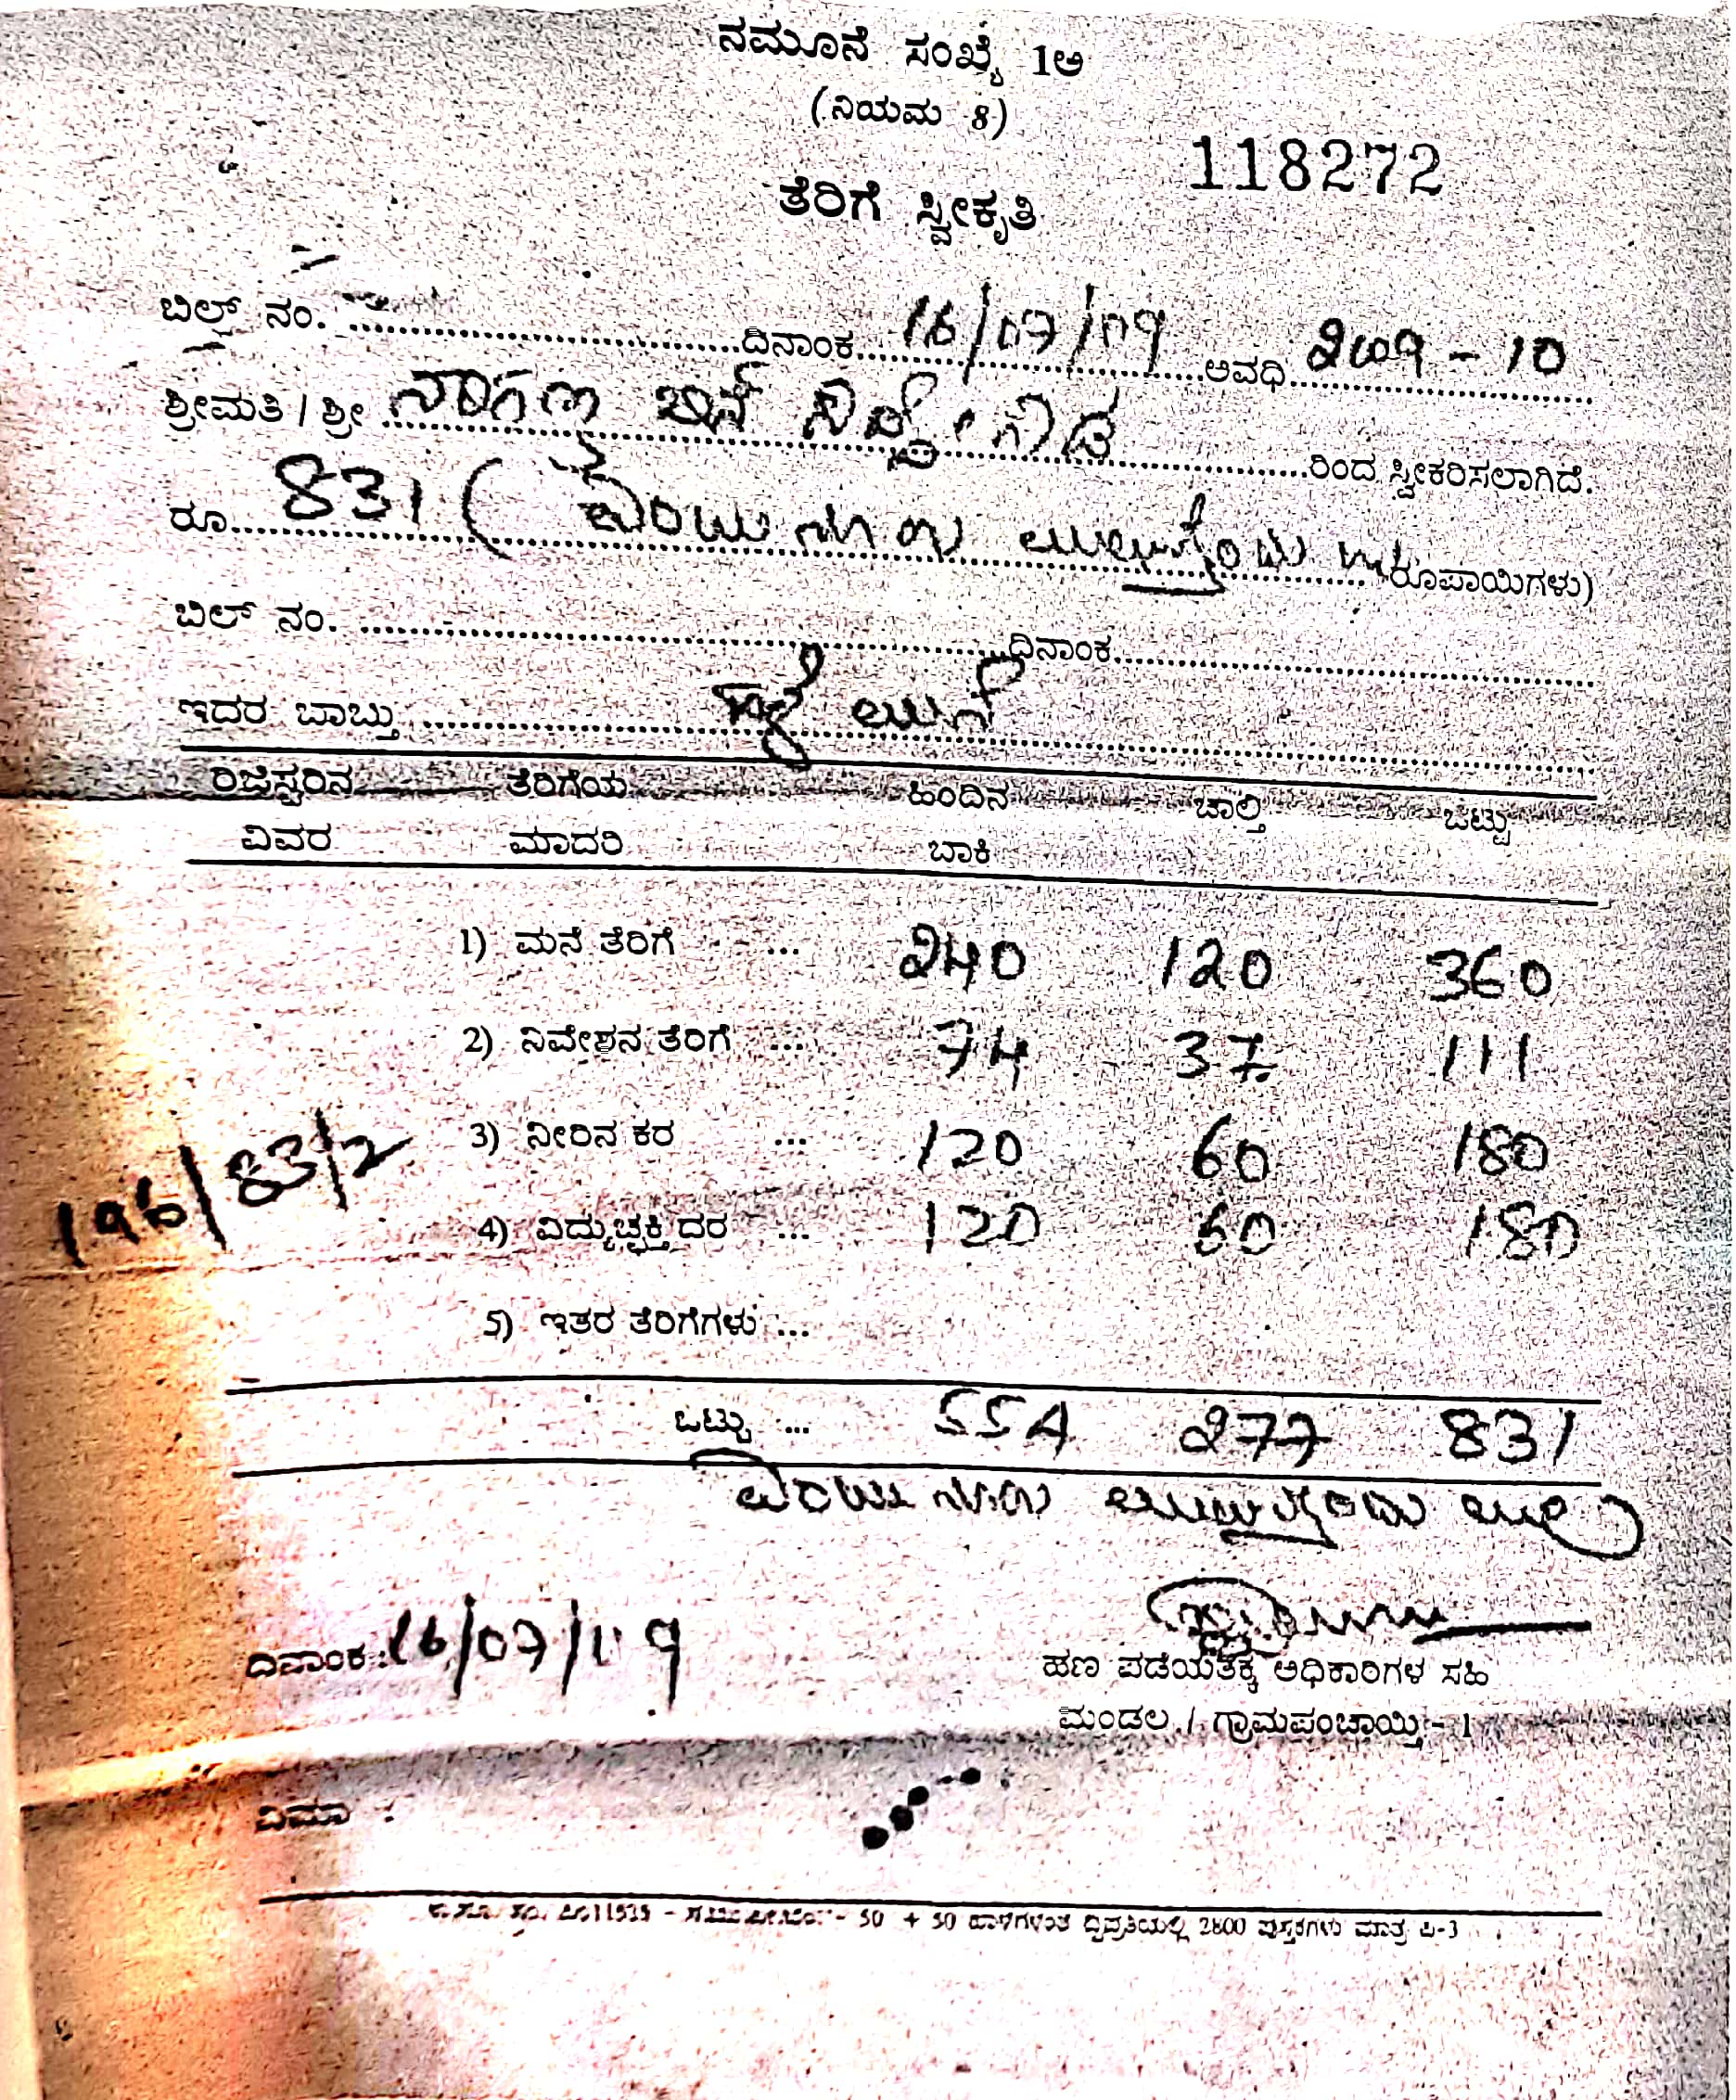 ನಮೂನೆ ಸಂಖ್ಯೆ 1ಅ
(ನಿಯಮ 8)
118272
ತೆರಿಗೆ ಸ್ವೀಕೃತಿ
ಬಿಲ್ ನಂ. ದಿನಾಂಕ 16/07/09 ಅವಧಿ 2009-10
ಶ್ರೀಮತಿ / ಶ್ರೀ ನಾಗಣ್ಣ ಬಿನ್ ರಿಂದ ಸ್ವೀಕರಿಸಲಾಗಿದೆ.
ರೂ. 831 ( ಎಂಟು ನೂರು ಮುವತ್ತೊಂದು ರೂಪಾಯಿಗಳು)
ಬಿಲ್ ನಂ. ದಿನಾಂಕ
ಇದರ ಬಾಬ್ತು
ರಿಜಿಸ್ಟರಿನ ತೆರಿಗೆಯ ಹಿಂದಿನ ಚಾಲ್ತಿ ಒಟ್ಟು
ವಿವರ ಮಾದರಿ ಬಾಕಿ
1) ಮನೆ ತೆರಿಗೆ ... 240 120 360
2) ನಿವೇಶನ ತೆರಿಗೆ ... 74 37 111
3) ನೀರಿನ ಕರ ... 120 60 180
196/83/2
4) ವಿದ್ಯುಚ್ಛಕ್ತಿ ದರ ... 120 60 180
5) ಇತರ ತೆರಿಗೆಗಳು ...
ಒಟ್ಟು ... 554 277 831
ಎಂಟು ನೂರು ಮುವತ್ತೊಂದು
ದಿನಾಂಕ : 16/07/09
ಹಣ ಪಡೆಯತಕ್ಕ ಅಧಿಕಾರಿಗಳ ಸಹಿ
ಮಂಡಲ / ಗ್ರಾಮಪಂಚಾಯ್ತಿ - 1
ವಿಮಾ :
50 + 50 ಹಾಳೆಗಳಂತೆ ದ್ವಿಪ್ರತಿಯಲ್ಲಿ 2800 ಪುಸ್ತಕಗಳು ಮಾತ್ರ